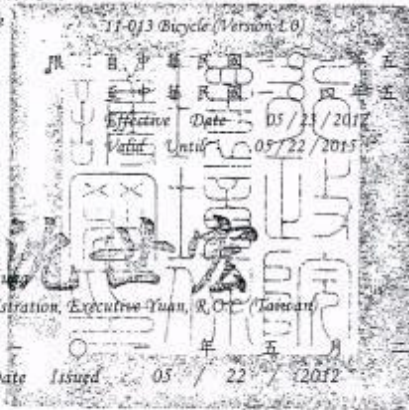 11-013 Bicycle (Version 1.0)
限 自 中 華 民 國 一 〇 年 五
至 中 華 民 國 一 〇 四 年 五
Effective Date : 05 / 23 / 2012
Valid Until : 05 / 22 / 2015
沈世宏
istration, Executive Yuan, R.O.C. (Taiwan)
〇 一 年 五 月 二
Date Issued : 05 / 22 / 2012